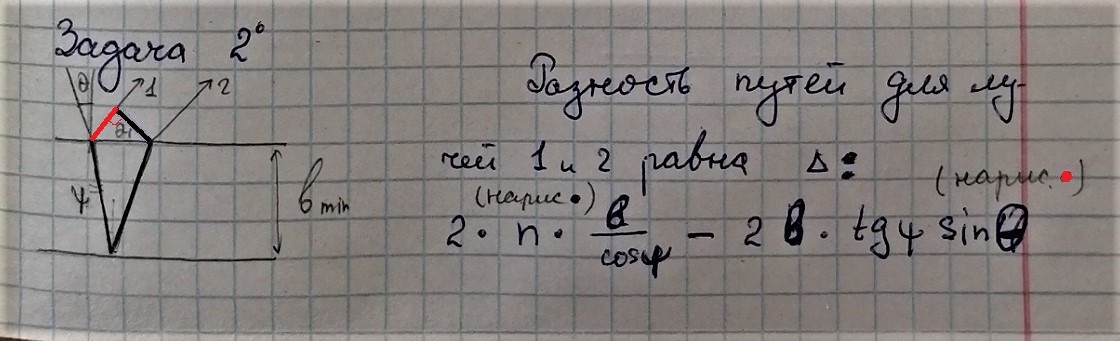 Задача 2°
θ 1 2
Разность путей для лу-
θ
чей 1 и 2 равна Δ:
ψ b min (нарис •) (нарис. •)
2 · n · b/cosψ − 2b · tgψ sinθ